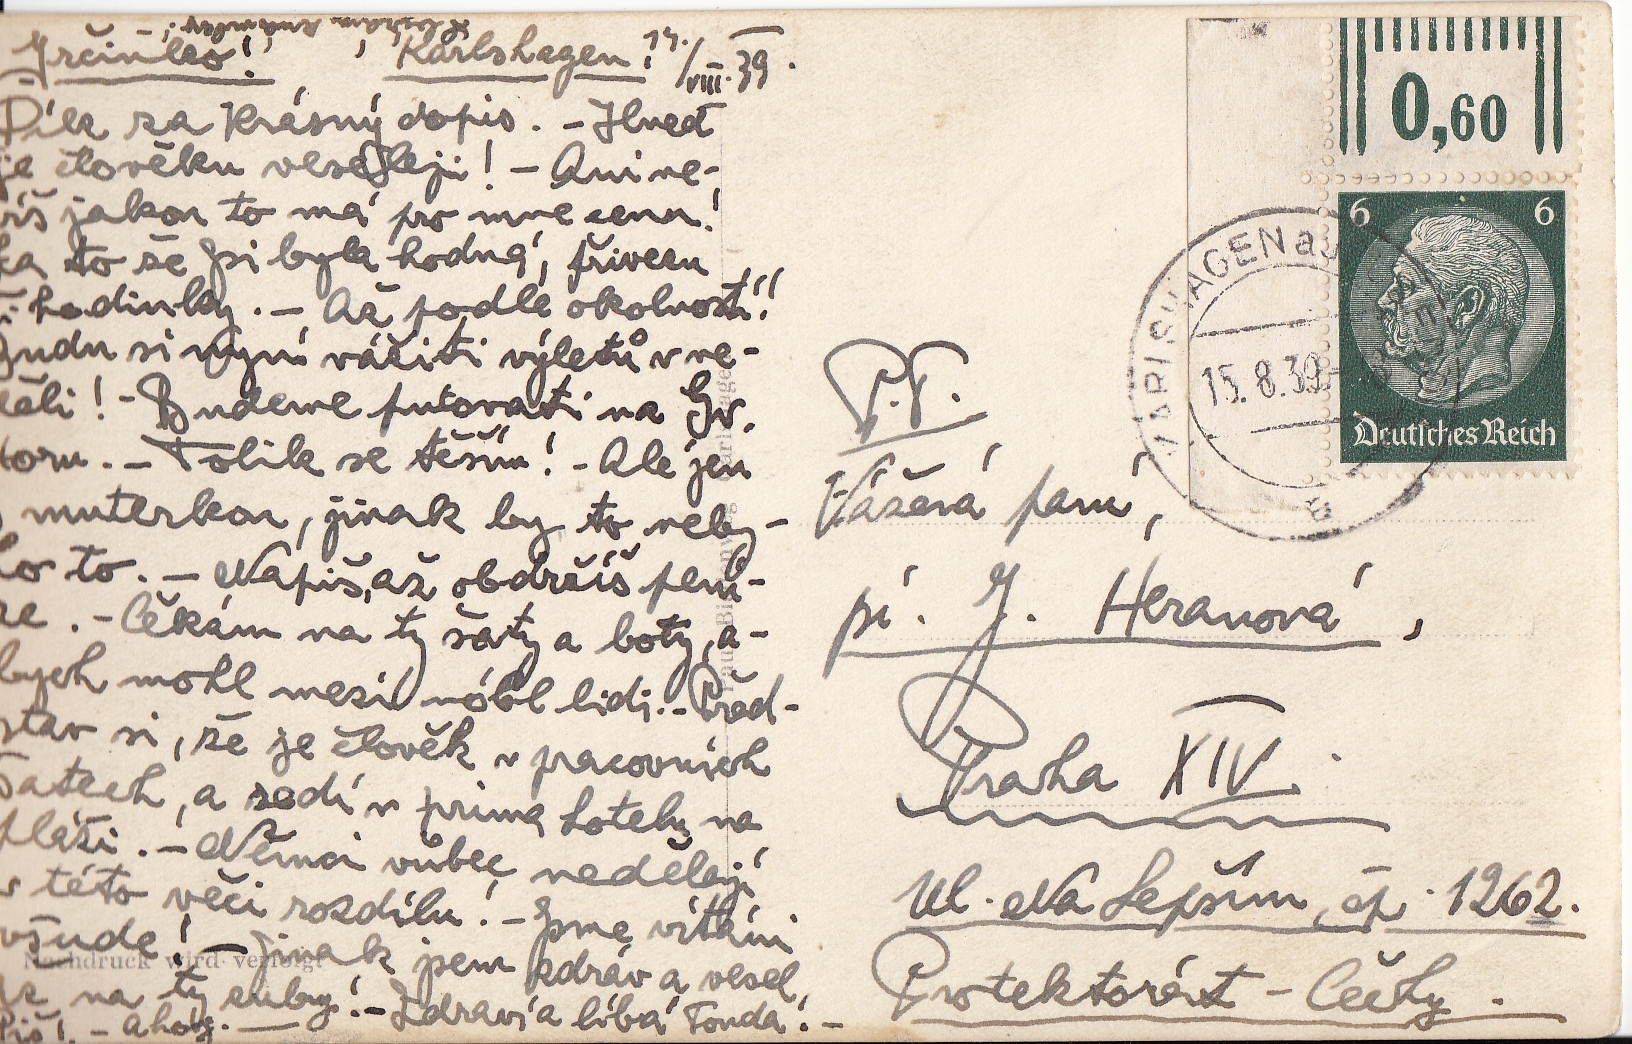 Jrčinko! Karlshagen! 14./VIII. 39.
Díka za krásný dopis. - Ihned
je člověku veseleji! - Ani ne-
víš jakou to má pro mne cenu!
ka to že jsi byla hodná, přivezu
ti hodinky. - Až podle okolností!
Budu si nyní vážiti výletů v ne-
děli! - Budeme putovati na Hv.
toru. - Tolik se těším! - Ale jen
muterkou, jinak by to neby-
lo to. - Napiš, až obdržíš pení-
ze. - Čekám na ty šaty a boty, a-
bych mohl mezi nóbl lidi. - Před-
stav si, že je člověk v pracovních
šatech, a sedí v prima hotelu na
pláži. - Němci vůbec nedělají
v této věci rozdílu! - Jsme vítáni
všude! - Jinak jsem zdráv a vesel,
až na ty zuby! - Zdraví a líbá Tonda! -
Piš! - ahoj.
Nachdruck wird verfolgt
0,60
6 6
Deutsches Reich
15.8.39
P.T.
Vážená paní,
pí. J. Heranová,
Praha XIV.
Ul. Na Lepším, čp. 1262.
Protektorát - Čechy.